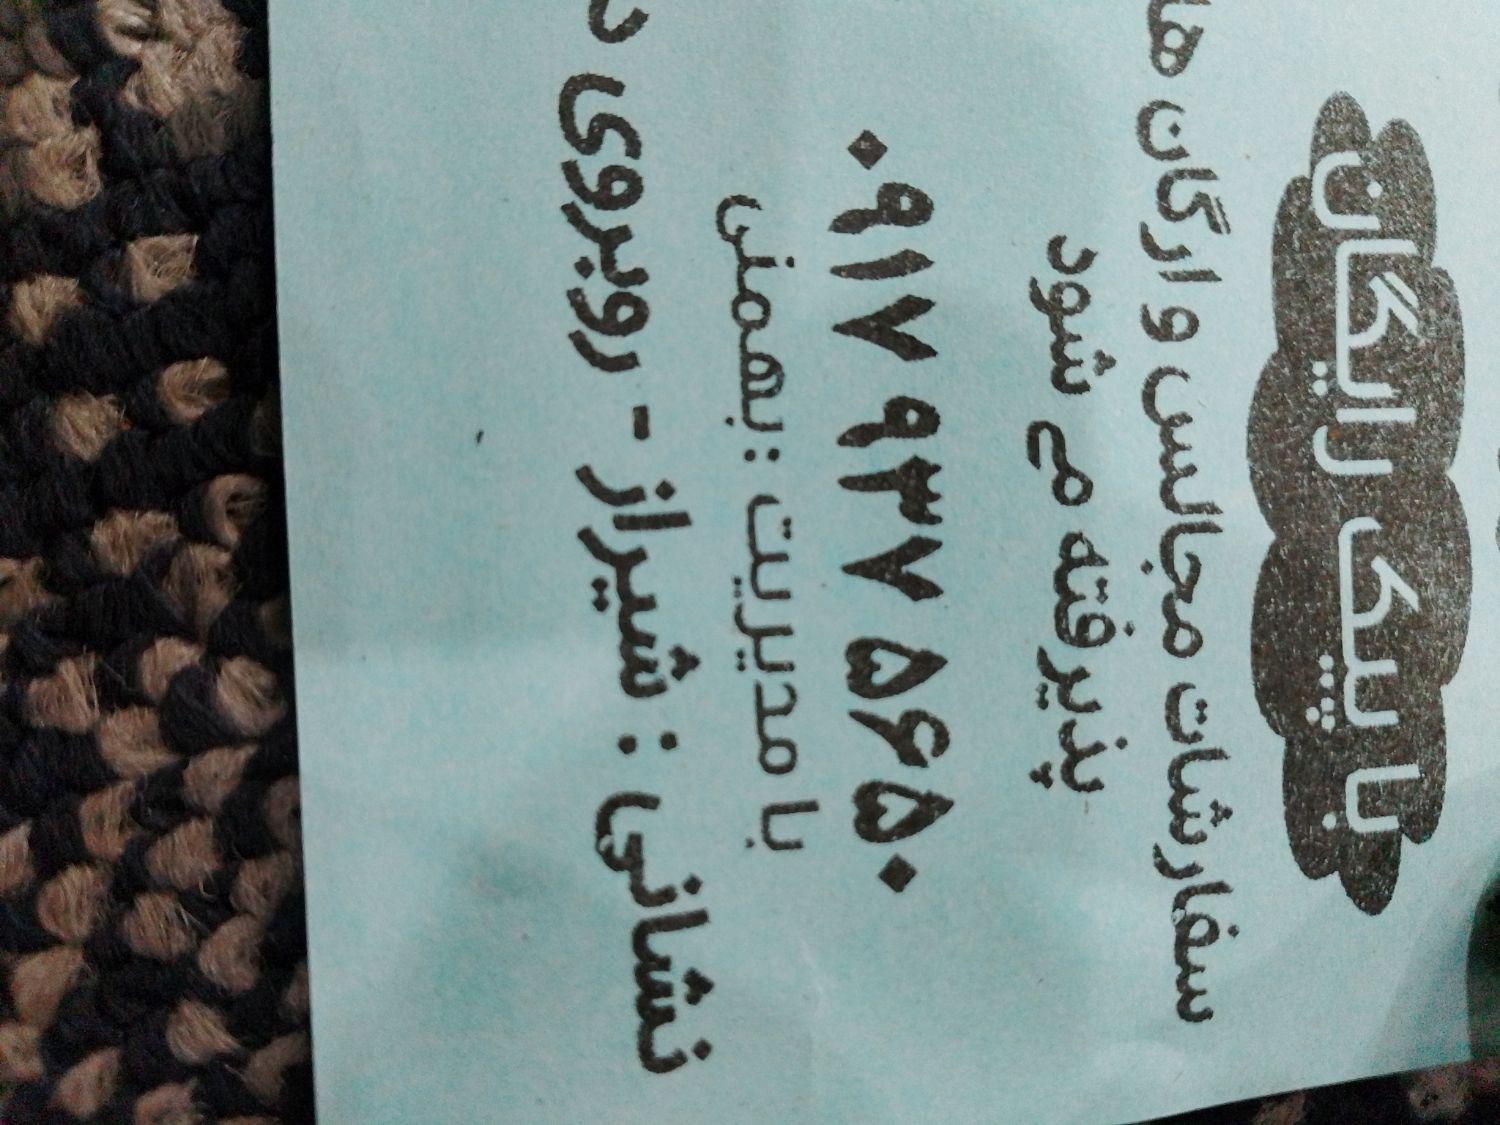 با پیک رایگان
سفارشات مجالس و ارگان ها
پذیرفته می شود
۰۹۱۷ ۹۳۷ ۵۶۵۰
با مدیریت : بهمنی
نشانی : شیراز - روبروی